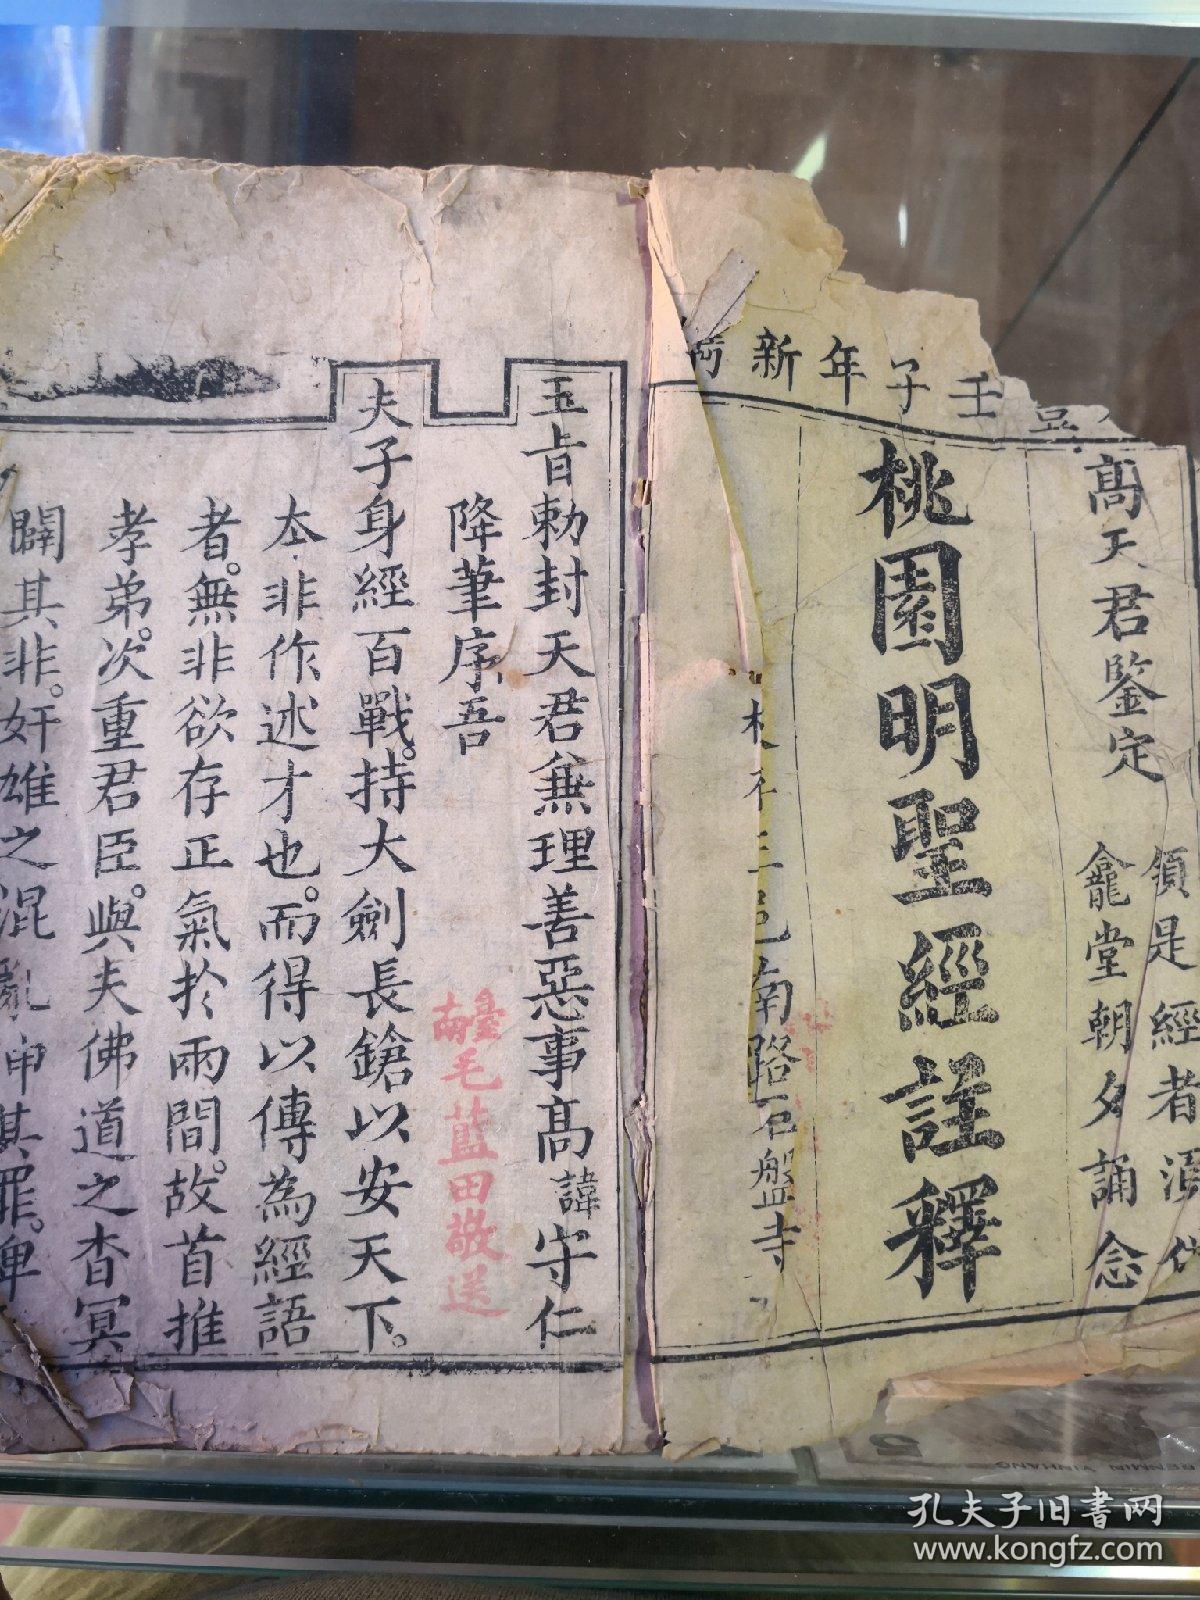 壬子年新
高天君鑒定
領是經者
龕堂朝夕誦念
桃園明聖經註釋
南路石盤寺
玉旨勅封天君兼理善惡事高諱守仁
降筆序吾
臺南毛藍田敬送
夫子身經百戰。持大劍長鎗以安天下。
本非作述才也。而得以傳為經語
者。無非欲存正氣於兩間。故首推
孝弟。次重君臣。與夫佛道之杳冥
闢其非。奸雄之混亂申其罪。俾
孔夫子旧书网
www.kongfz.com
RENMIN YINHANG